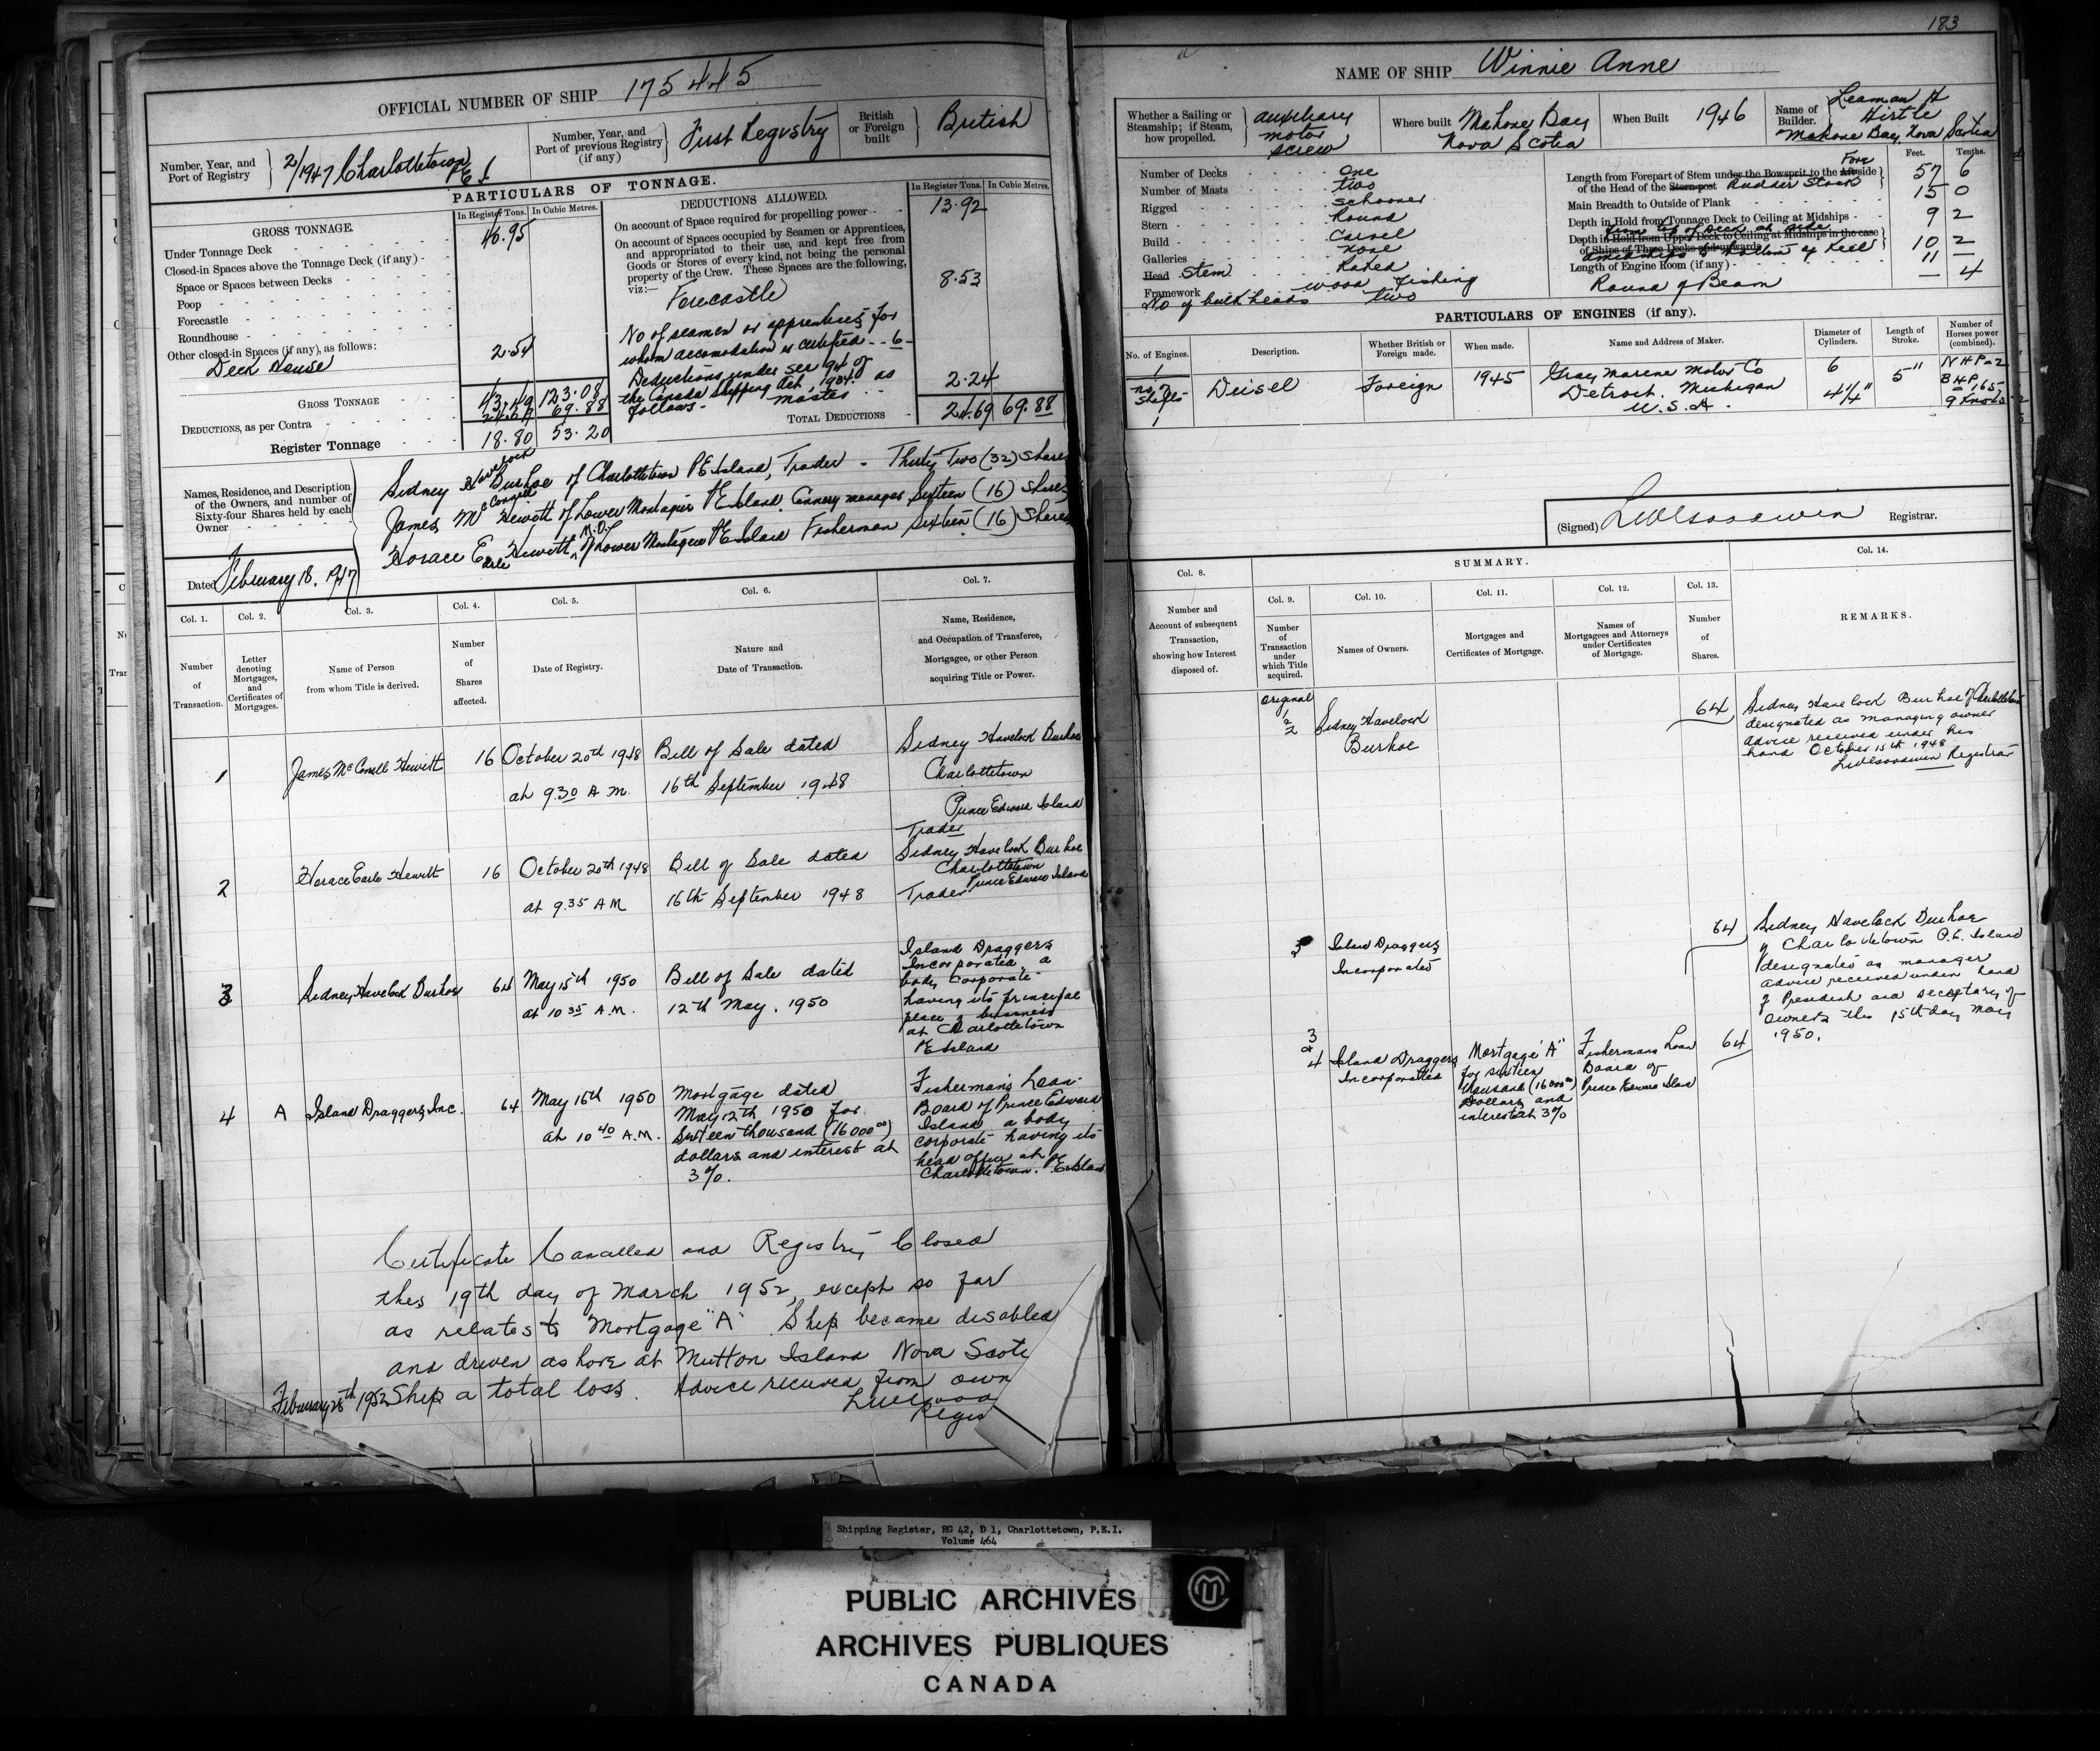 183
OFFICIAL NUMBER OF SHIP 175445
Number, Year, and Port of Registry 2/1947 Charlottetown P E I
Number, Year, and Port of previous Registry (if any) First Registry
British or Foreign built British
PARTICULARS OF TONNAGE.
GROSS TONNAGE.
In Register Tons. In Cubic Metres.
Under Tonnage Deck 40.95
Closed-in Spaces above the Tonnage Deck (if any)
Space or Spaces between Decks
Poop
Forecastle
Roundhouse
Other closed-in Spaces (if any), as follows: 2.54
Deck House
GROSS TONNAGE 43.49 123.08
DEDUCTIONS, as per Contra 24.69 69.88
Register Tonnage 18.80 53.20
DEDUCTIONS ALLOWED.
In Register Tons. In Cubic Metres.
On account of Space required for propelling power 13.92
On account of Spaces occupied by Seamen or Apprentices,
and appropriated to their use, and kept free from
Goods or Stores of every kind, not being the personal
property of the Crew. These Spaces are the following,
viz:— 8.53
Forecastle
No of seamen or apprentices for
whom accomodation is certified -- 6 -
Deductions under sec 94 of
the Canada Shipping Act, 1934. as
follows- master 2.24
TOTAL DEDUCTIONS 24.69 69.88
Names, Residence, and Description of the Owners, and number of Sixty-four Shares held by each Owner
Sidney Havelock Burhoe of Charlottetown P E Island, Trader - Thirty Two (32) Shares
James McConnell Hewitt of Lower Montague P E Island Cannery manager Sixteen (16) Shares
Horace Earle Hewitt of Lower Montague P E Island Fisherman Sixteen (16) Shares
Dated February 18. 1947
Col. 1. Col. 2. Col. 3. Col. 4. Col. 5. Col. 6. Col. 7.
Number of Transaction.
Letter denoting Mortgages, and Certificates of Mortgages.
Name of Person from whom Title is derived.
Number of Shares affected.
Date of Registry.
Nature and Date of Transaction.
Name, Residence, and Occupation of Transferee, Mortgagee, or other Person acquiring Title or Power.
1 James McConnell Hewitt 16 October 20th 1948 Bill of Sale dated Sidney Havelock Burhoe
at 9.30 A M. 16th September 1948 Charlottetown
Prince Edward Island
Trader
2 Horace Earle Hewitt 16 October 20th 1948 Bill of Sale dated Sidney Havelock Burhoe
Charlottetown
at 9.35 A M 16th September 1948 Trader Prince Edward Island
3 Sidney Havelock Burhoe 64 May 15th 1950 Bill of Sale dated
at 10 35 A.M. 12th May. 1950
Island Draggers
Incorporated, a
body corporate
having its principal
place of business
at Charlottetown
P E Island
4 A Island Draggers Inc. 64 May 15th 1950
at 10 40 A.M.
Mortgage dated
May 12th 1950 for
Sixteen thousand (16000 00)
dollars and interest at
3%.
Fisherman's Loan
Board of Prince Edward
Island a body
corporate having its
head office at
Charlottetown. P E Island
Certificate Cancelled and Registry Closed
this 19th day of March 1952, except so far
as relates to Mortgage "A" Ship became disabled
and driven ashore at Mutton Island Nova Scoti
February 28th 1952 Ship a total loss. Advice received from own
Regis
NAME OF SHIP Winnie Anne
Whether a Sailing or Steamship; if Steam, how propelled. auxiliary motor screw
Where built Mahone Bay Nova Scotia
When Built 1946
Name of Builder. Leaman A Hirtle
Mahone Bay, Nova Scotia
Number of Decks One
Number of Masts two
Rigged schooner
Stern Round
Build Carvel
Galleries none
Head Stem Raked
Framework wood fishing
No of bulkheads two
Feet. Tenths.
Length from Forepart of Stem under the Bowsprit to the Aft side Fore
of the Head of the Stern-post Rudder Stock 57 6
Main Breadth to Outside of Plank 15 0
Depth in Hold from Tonnage Deck to Ceiling at Midships 9 2
from top of Deck at side
Depth in Hold from Upper Deck to Ceiling at Midships in the case
of Ships of Three Decks and upwards 10 2
amidships to bottom of keel
Length of Engine Room (if any) 11 —
Round of Beam — 4
PARTICULARS OF ENGINES (if any).
No. of Engines. Description. Whether British or Foreign made. When made. Name and Address of Maker. Diameter of Cylinders. Length of Stroke. Number of Horses power (combined).
1 Deisel Foreign 1945 Gray Marine Motor Co 6 5" N H P
no of shafts Detroit. Michigan 4 1/4" B H P 165
1 U.S.A. 9 Knots
(Signed) Registrar.
SUMMARY.
Col. 8. Col. 9. Col. 10. Col. 11. Col. 12. Col. 13. Col. 14.
Number and Account of subsequent Transaction, showing how Interest disposed of.
Number of Transaction under which Title acquired.
Names of Owners.
Mortgages and Certificates of Mortgage.
Names of Mortgagees and Attorneys under Certificates of Mortgage.
Number of Shares.
REMARKS.
Original
1
2 Sidney Havelock 64
Burhoe
Sidney Havelock Burhoe of Charlottetown
designated as managing owner
advice received under his
hand October 15th 1948
Registrar
3 Island Draggers 64
Incorporated
Sidney Havelock Burhoe
of Charlottetown P.E. Island
designated as manager
advice received under hand
of President and Secretary of
owners this 15th day May
1950.
3
&
4 Island Draggers
Incorporated
Mortgage "A"
for sixteen
thousand (16000 00)
Dollars and
interest at 3%
Fishermans Loan
Board of
Prince Edward Island
64
Shipping Register, RG 42, D 1, Charlottetown, P.E.I.
Volume 464
PUBLIC ARCHIVES
ARCHIVES PUBLIQUES
CANADA